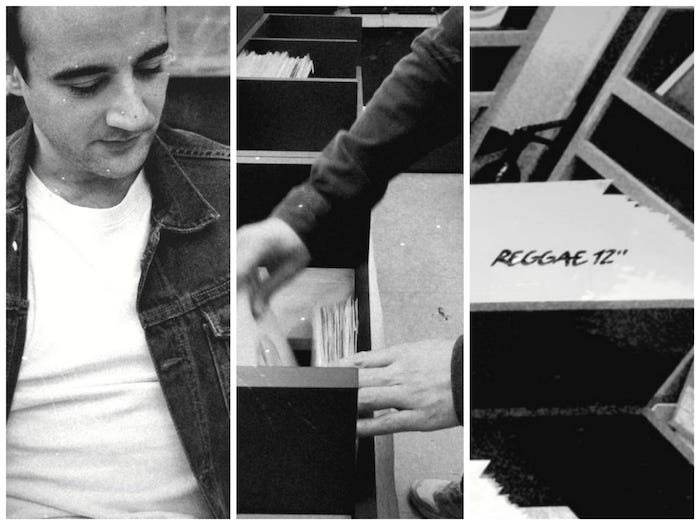 REGGAE 12"